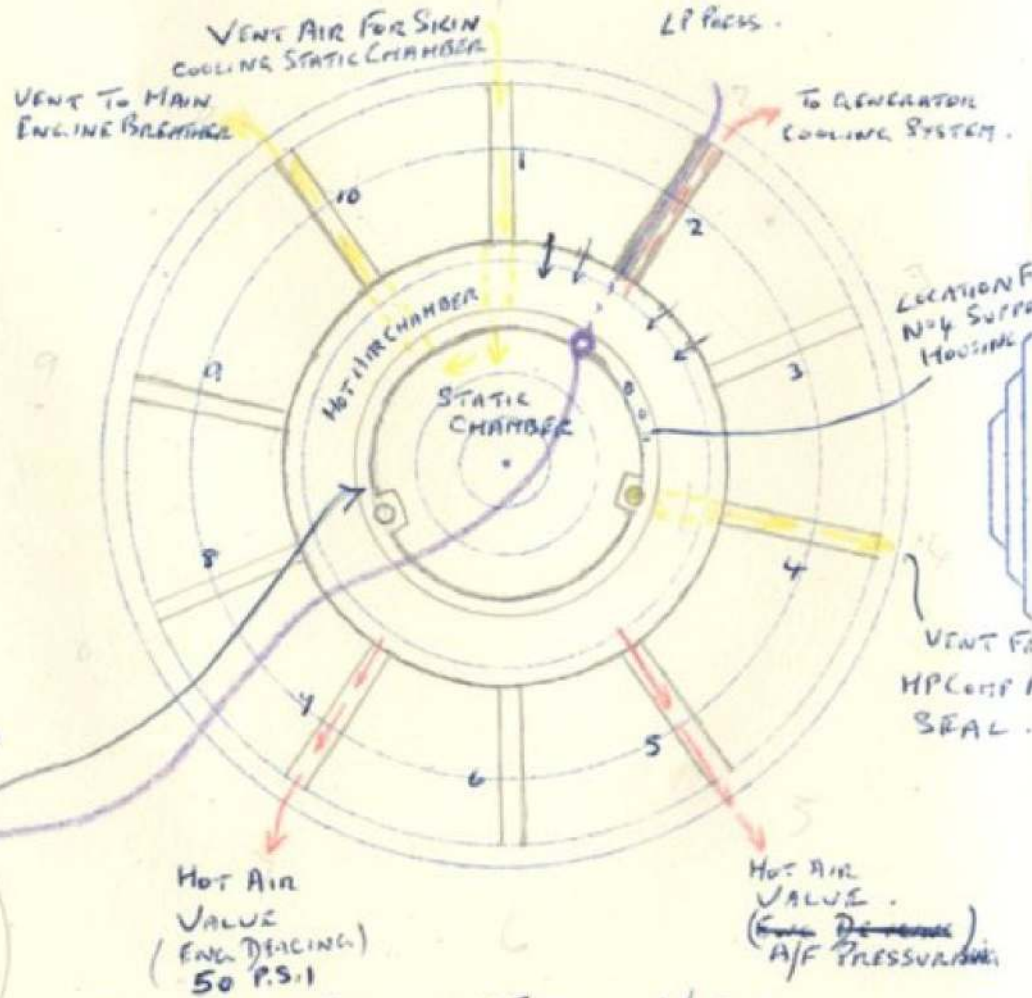 VENT AIR FOR SKIN
COOLING STATIC CHAMBER
LP PRESS.
VENT TO MAIN
ENGINE BREATHER
TO GENERATOR
COOLING SYSTEM.
1
10
2
LOCATION F
No4 SUPPO
HOUSING
HOT AIR CHAMBER
9
9
3
STATIC
CHAMBER
8
4
VENT FR
HP COMP
SEAL.
7
5
6
5
6
HOT AIR
VALUE
(ENG. DEICING)
50 P.S.I
HOT AIR
VALUE.
(ENG DE-ICING)
A/F PRESSURISING